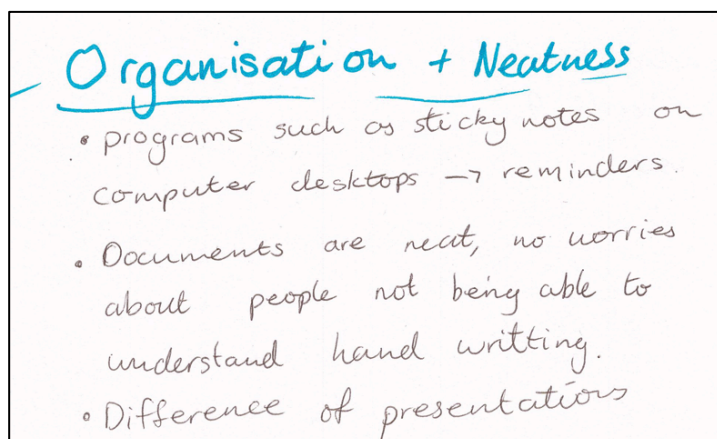 Organisation + Neatness
• programs such as sticky notes on
computer desktops → reminders.
• Documents are neat, no worries
about people not being able to
understand hand writting.
• Difference of presentations